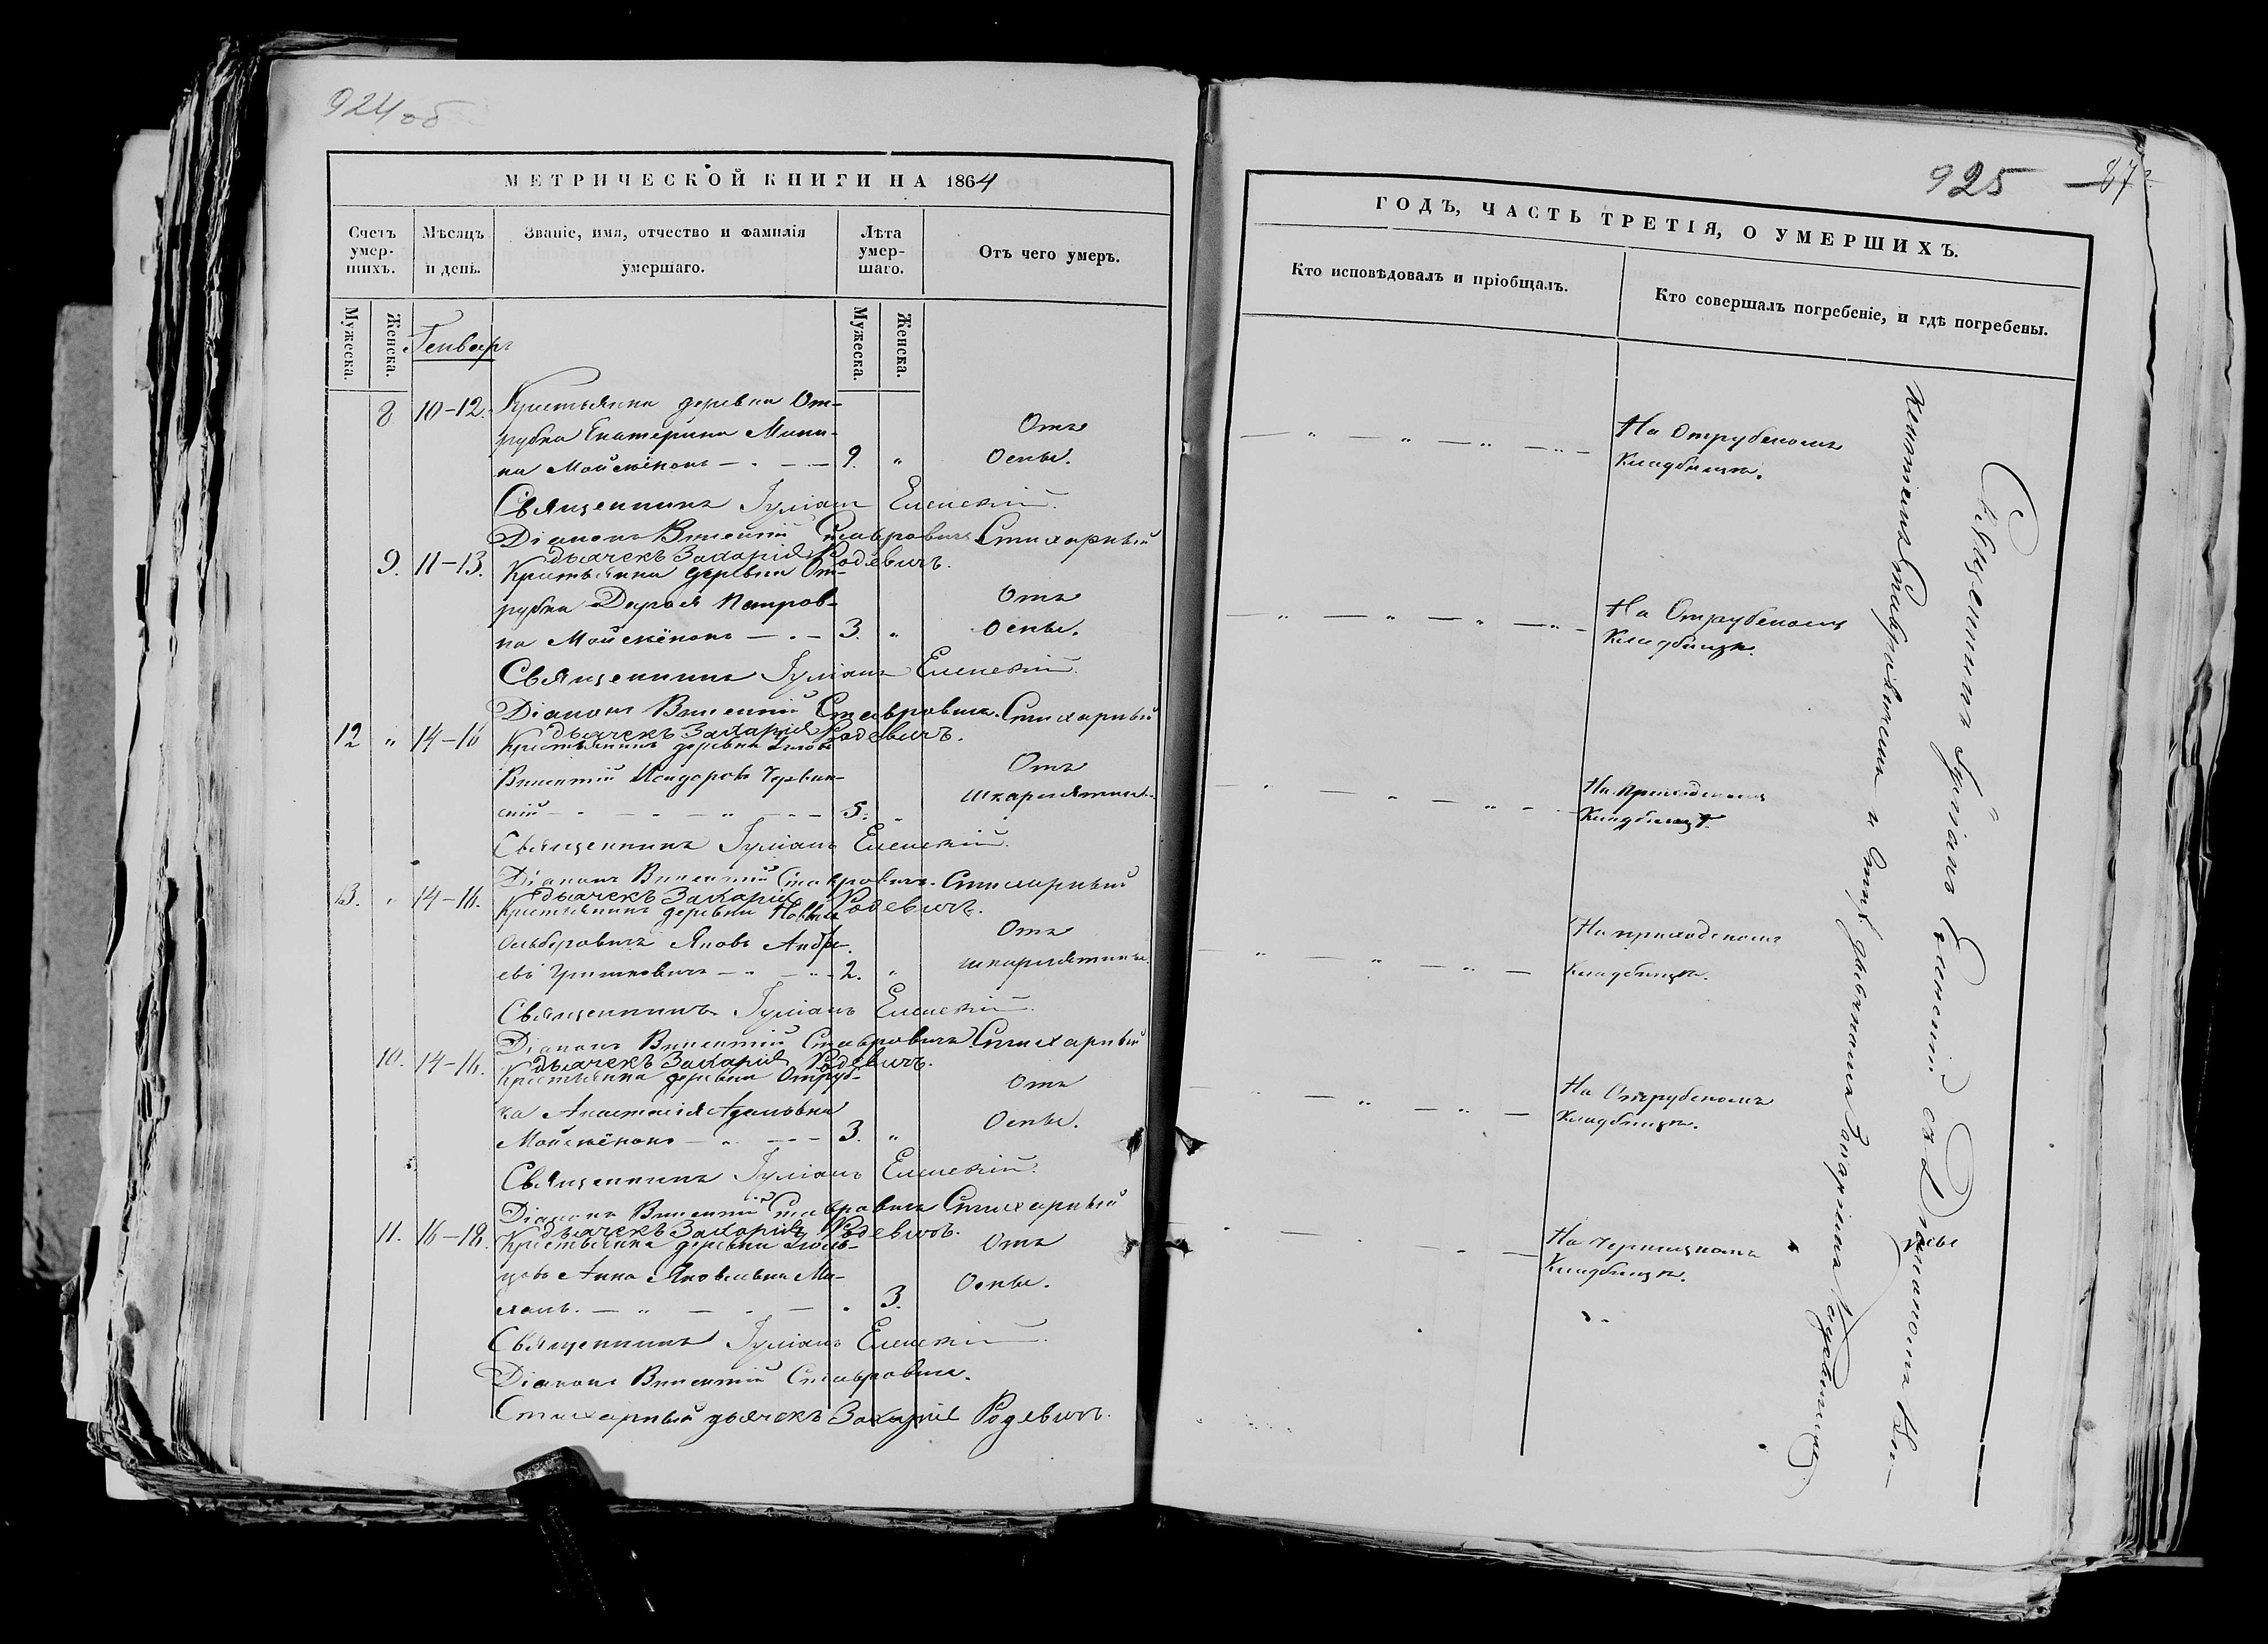 924 об
МЕТРИЧЕСКОЙ КНИГИ НА 1864
Счетъ умер-шихъ.
Мѣсяцъ и день.
Званіе, имя, отчество и фамилія умершаго.
Лѣта умер-шаго.
Отъ чего умеръ.
Мужеска.
Женска.
Генварь
Мужеска.
Женска.
8 10-12. Крестьянка деревни От-
рубка Екатерина Мини- Отъ
на Мойсеёнокъ 9. " Оспы.
Священникъ Іуліанъ Еленскій.
Діаконъ Викентій Ставровичъ Стихарный
дьячекъ Захарія Родевичъ.
9. 11-13. Крестьянка деревни От-
рубка Дарья Петров- Отъ
на Мойсеёнокъ 3. " Оспы.
Священникъ Іуліанъ Еленскій.
Діаконъ Викентій Ставровичъ. Стихарный
дьячекъ Захарія Родевичъ.
12 " 14-16 Крестьянинъ деревни
Викентій Исидоровъ Отъ
скій 5. " Шкарлятины.
Священникъ Іуліанъ Еленскій.
Діаконъ Викентій Ставровичъ. Стихарный
дьячекъ Захарія Родевичъ.
13. " 14-16. Крестьянинъ деревни
Яковъ Андре- Отъ
евъ 2. " шкарлятины.
Священникъ Іуліанъ Еленскій.
Діаконъ Викентій Ставровичъ Стихарный
дьячекъ Захарія Родевичъ.
10. 14-16. Крестьянка деревни Отруб-
ка Анастасія Адамовна Отъ
Мойсеёнокъ 3. " Оспы.
Священникъ Іуліанъ Еленскій.
Діаконъ Викентій Ставровичъ Стихарный
дьячекъ Захарія Родевичъ.
11. 16-18. Крестьянка деревни
Анна Яковлевна Отъ
3. Оспы.
Священникъ Іуліанъ Еленскій.
Діаконъ Викентій Ставровичъ.
Стихарный дьячекъ Захарія Родевичъ.
925 87
ГОДЪ, ЧАСТЬ ТРЕТІЯ, О УМЕРШИХЪ.
Кто исповѣдовалъ и пріобщалъ.
Кто совершалъ погребеніе, и гдѣ погребены.
На Отрубскомъ
Кладбищѣ.
На Отрубскомъ
Кладбищѣ.
На приходскомъ
Кладбищѣ.
На приходскомъ
Кладбищѣ.
На Отрубскомъ
Кладбищѣ.
На
Кладбищѣ.
Священникъ Іуліанъ Еленскій съ Діакономъ Ви-
кентіемъ Ставровичемъ и Стих. дьячкомъ Захаріемъ Родевичемъ.